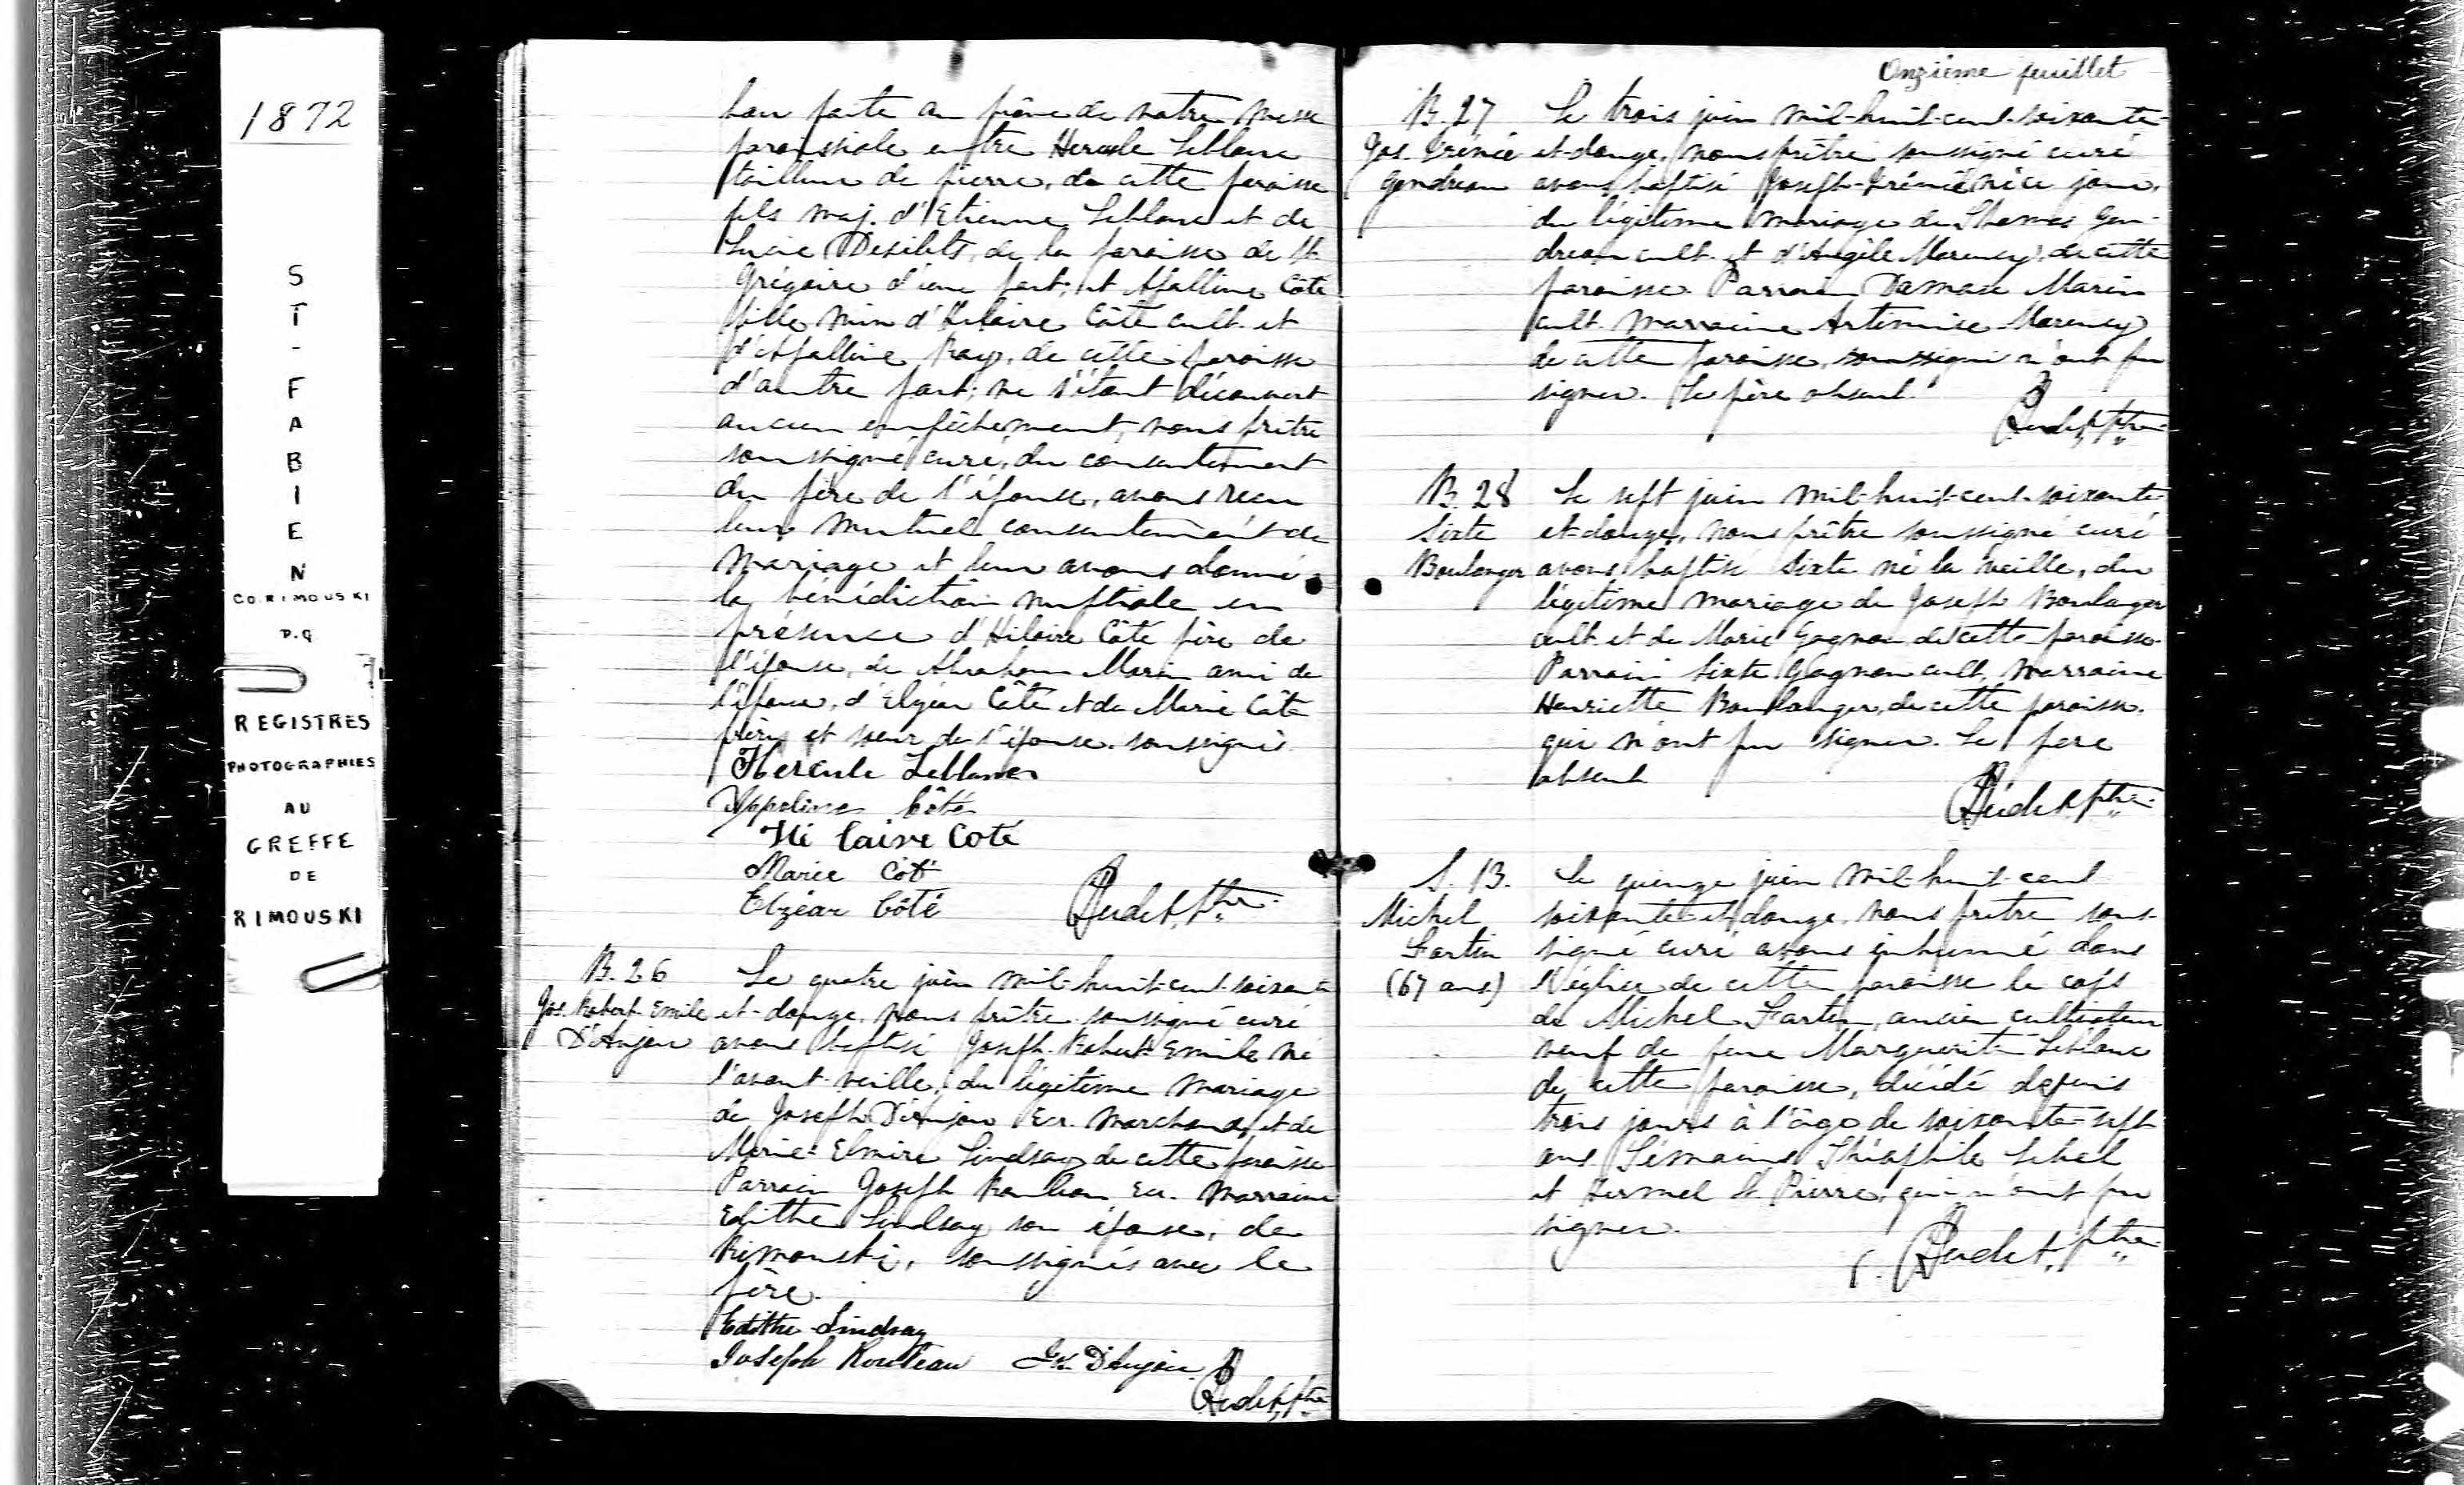 1872
S
T
-
F
A
B
I
E
N
CO. RIMOUSKI
P.Q
REGISTRES
PHOTOGRAPHIES
AU
GREFFE
DE
RIMOUSKI
faite au prône de notre messe
paroissiale entre Hercule Leblanc
tailleur de pierre, de cette paroisse
fils maj. d'Etienne Leblanc et de
Lucie Desilets, de la paroisse de St.
Grégoire d'une part; et Apolline Côté
fille min d'Hilaire Côté cult. et
d'Apolline Roy, de cette paroisse
d'autre part; ne s'étant découvert
aucun empêchement, nous prêtre
soussigné curé, du consentement
du père de l'épouse, avons reçu
leur mutuel consentement de
mariage et leur avons donné
la bénédiction nuptiale en
présence d'Hilaire Côté père de
l'épouse, de Abraham Morin ami de
l'époux, d'Elzéar Côté et de Marie Côté
frère et soeur de l'épouse soussignés
Hercule Leblanc
Appoline Côté
Hi laire Coté
Marie Côt
Elzéar Côté Audet, Ptre
B. 26 Le quatre juin mil-huit-cent-soixante
Jos. Robert Emile et-douze, nous prêtre soussigné curé
D'Anjou avons baptisé Joseph-Robert-Emile né
l'avant-veille, du légitime mariage
de Joseph D'Anjou Ecr. marchand, et de
Marie-Elmire Lindsay de cette paroisse
Parrain Joseph Rouleau Ecr. Marraine
Edithe Lindsay son épouse, de
Rimouski, soussignés avec le
père.
Edithe Lindsay
Joseph Rouleau Jos. D'Anjou
Audet, Ptre
Onzième feuillet
B. 27 Le trois juin mil-huit-cent-soixante-
Jos. Irénée et-douze, nous prêtre soussigné curé
Gendreau avons baptisé Joseph-Irénée né ce jour,
du légitime mariage de Thomas Gen-
dreau cult. et d'Angèle Marency, de cette
paroisse. Parrain Damase Marin
cult. Marraine Artémise Marency
de cette paroisse, soussigné n'ont pu
signer. Le père absent.
Audet, Ptre
B. 28 Le sept juin mil-huit-cent-soixante-
Sixte et-douze, nous prêtre soussigné curé
Boulanger avons baptisé Sixte né la veille, du
légitime mariage de Joseph Boulanger
cult. et de Marie Gagnon de cette paroisse.
Parrain Sixte Gagnon cult. marraine
Henriette Boulanger, de cette paroisse.
qui n'ont pu signer. Le père
absent
Audet, Ptre
S. 13. Le quinze juin mil-huit-cent
Michel soixante-et-douze, nous prêtre sous-
signé curé avons inhumé dans
(67 ans) l'église de cette paroisse le cops
de Michel ancien cultivateur
veuf de feue Marguerite Leblanc
de cette paroisse, décédé depuis
trois jours à l'âge de soixante-sept
ans. Témoins Théophile Lebel
et Hermel St Pierre, qui n'ont pu
signer.
Audet, Ptre